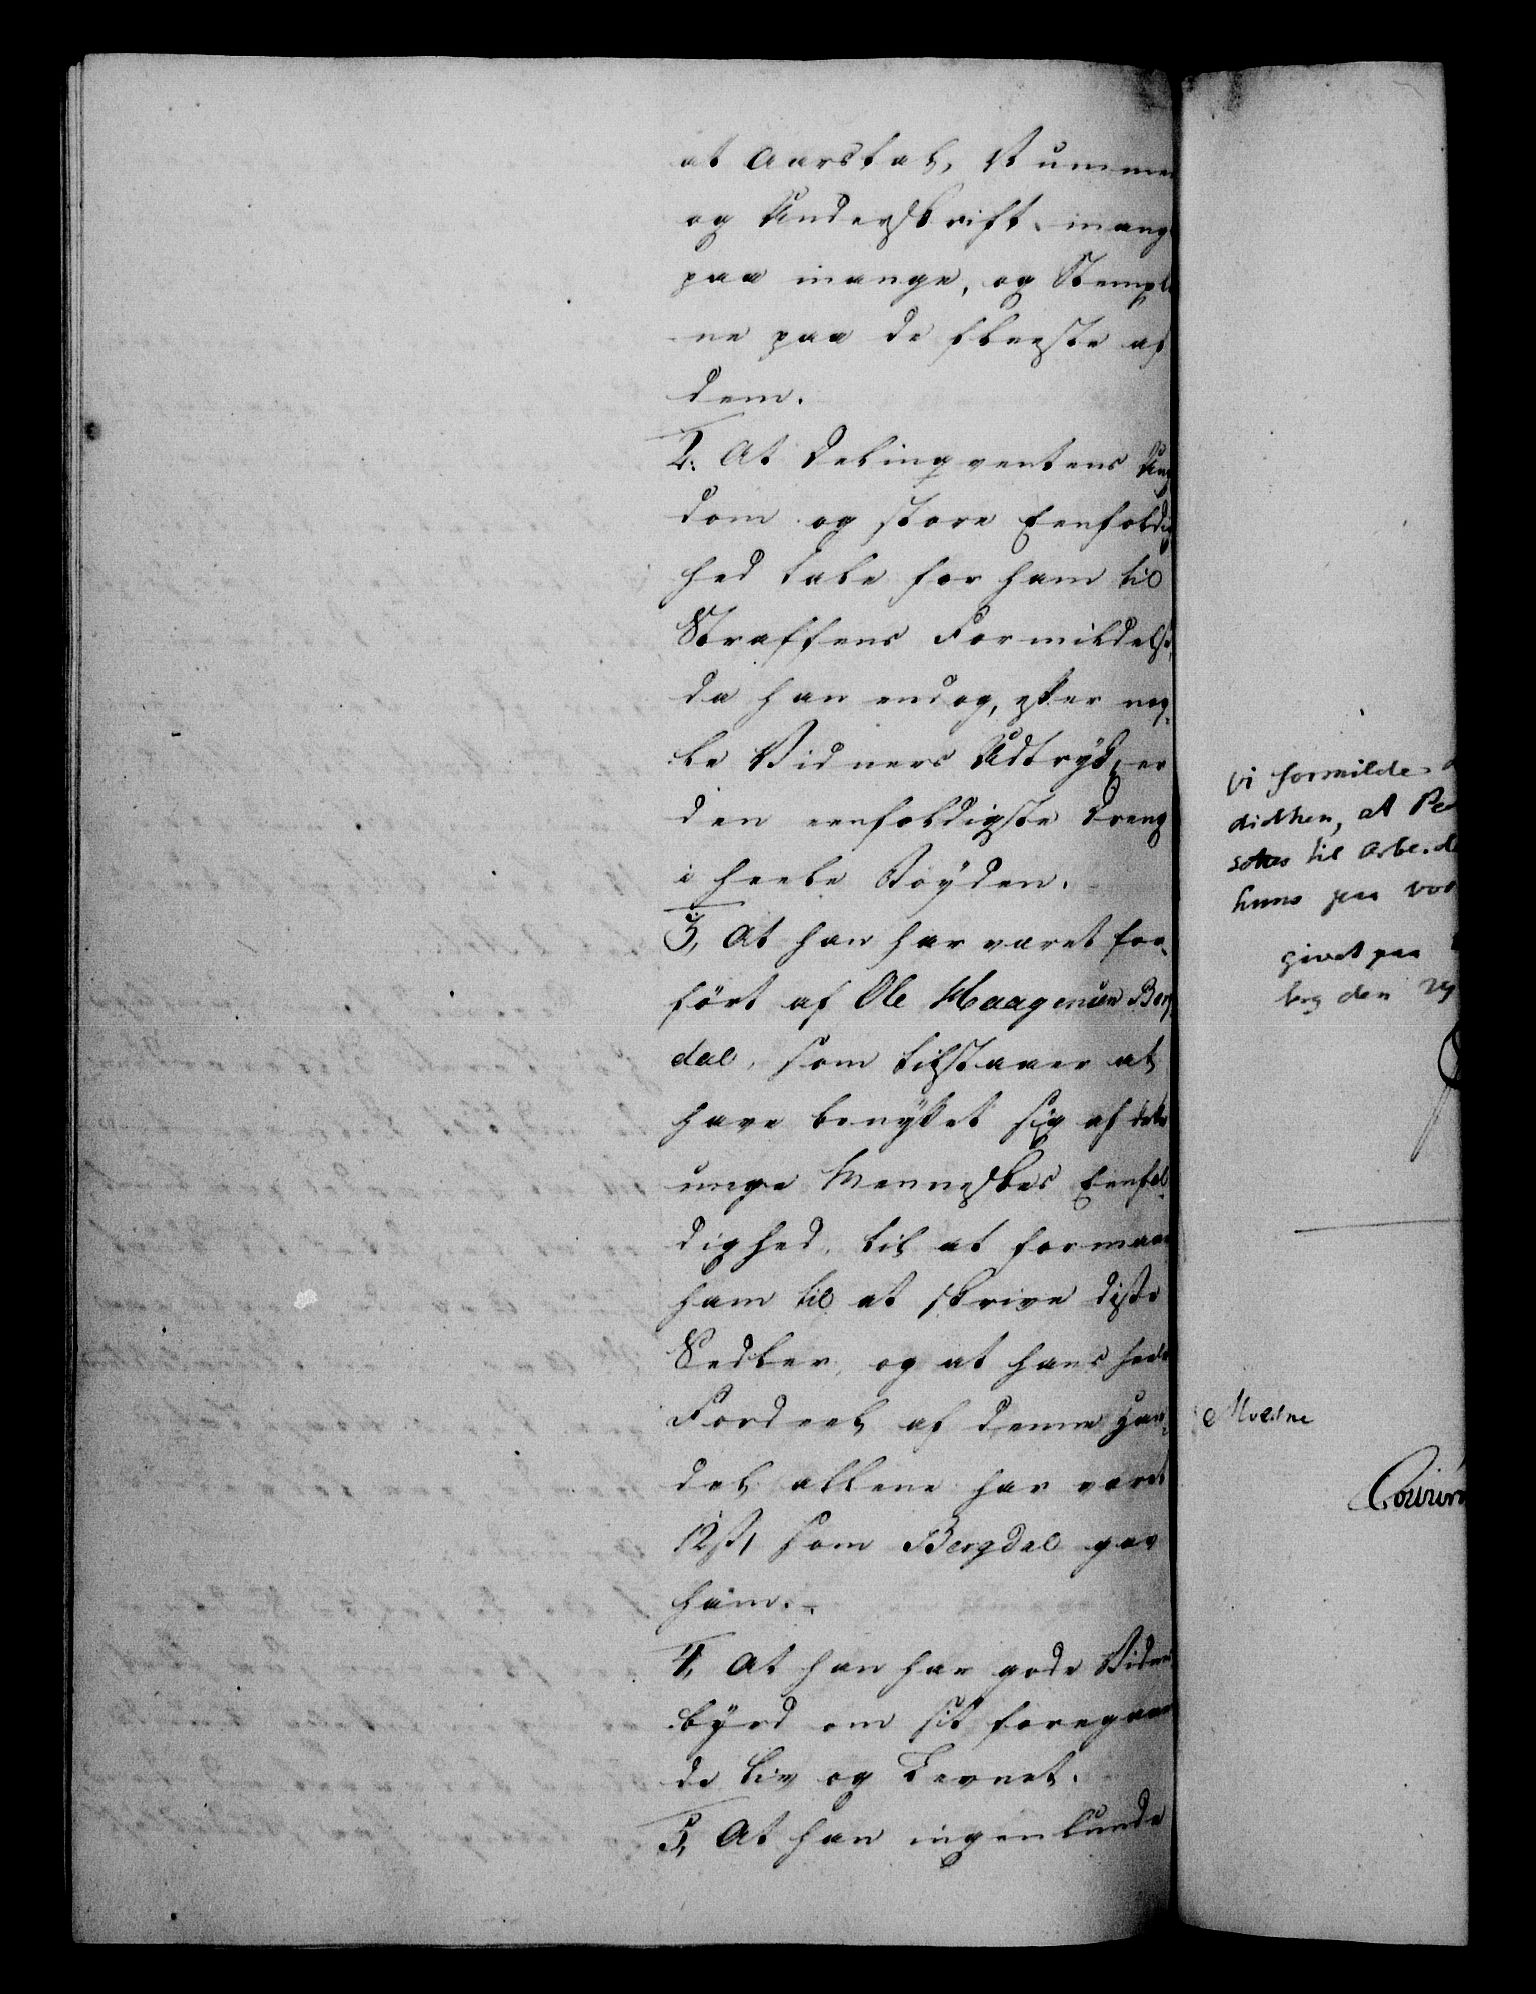 at Aarstal, Numme
og Underskrift mang
paa mange, og Stempl
ne paa de fleeste af
dem.
2. At Delinqventens Ung
dom og store Eenfoldig
hed tale for ham til
Straffens Formildelse,
da han endog, efter nog-
le Vidners Udtryk, er
den eenfoldigste Dreng
i heele Bøyden.
3, At han har været for-
ført af Ole Haagensen Berg
dal, som tilstaaer at
have benyttet sig af dette
unge Menneskes Eenfol-
dighed, til at formaae
ham til at skrive disse
Sedler, og at hans heele
Fordeel af denne Han-
del allene har været
12 ß, som Bergdal gav
ham.
4, At han har gode Vidnes
byrd om sit foregaaen
de Liv og Levnet.
5, At han ingenlunde
Vi formilde
didhen, at Pe
settes til Arbeide
huus paa vor
givet paa
berg den 29
Moestue